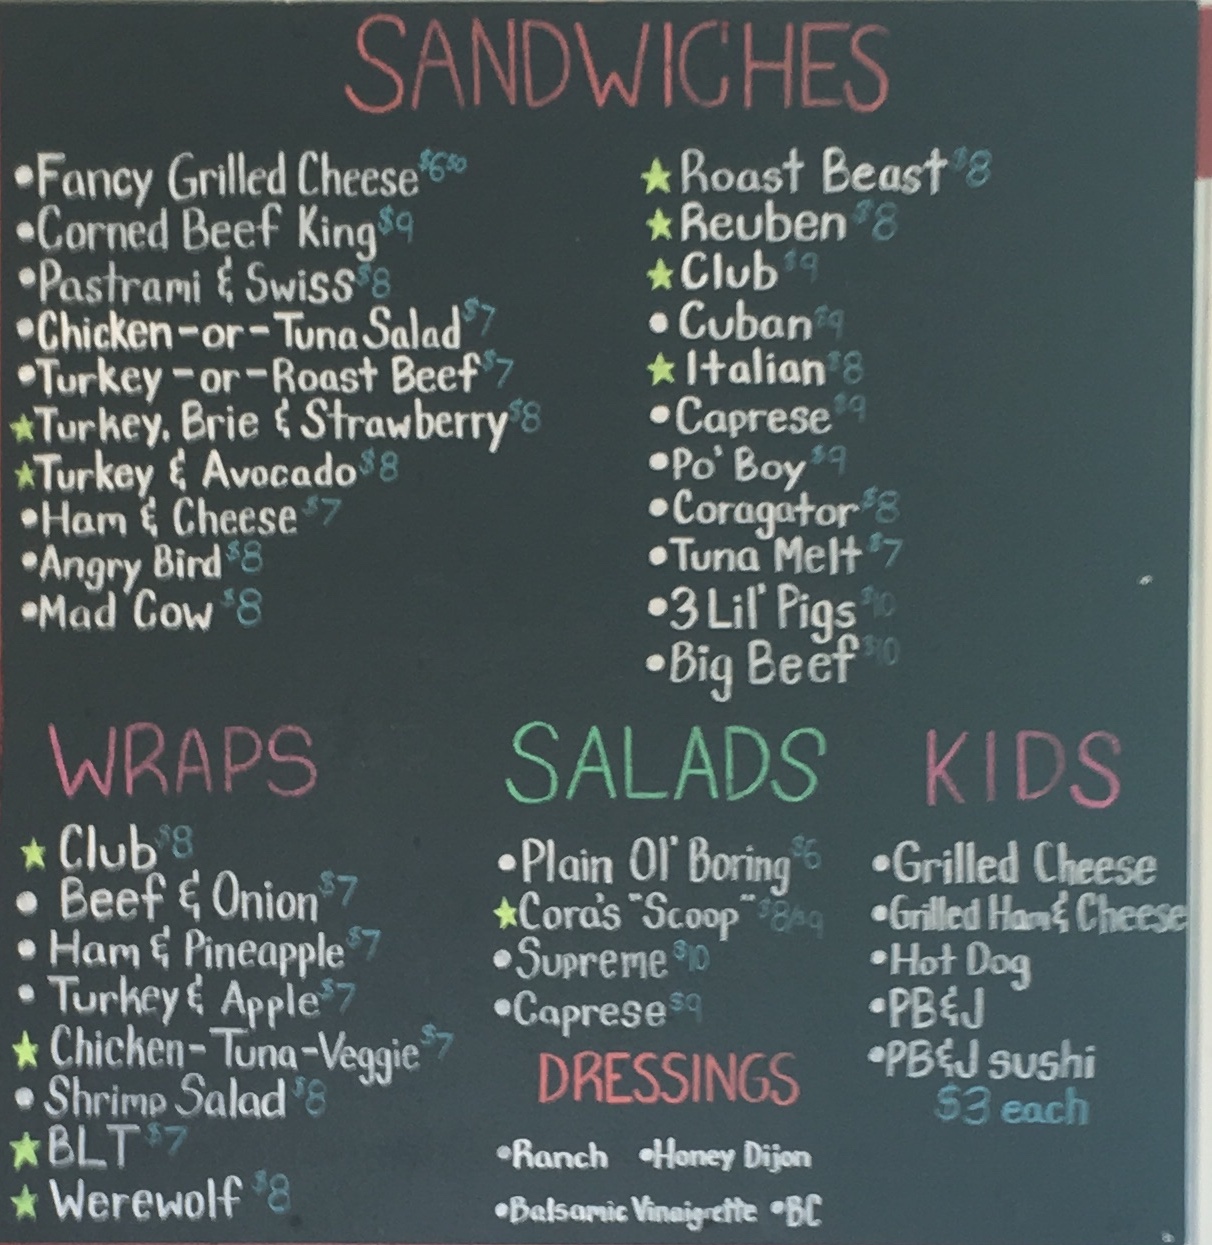 SANDWICHES
•Fancy Grilled Cheese $6⁵⁰
•Corned Beef King $9
•Pastrami & Swiss $8
•Chicken-or-Tuna Salad $7
•Turkey-or-Roast Beef $7
★Turkey, Brie & Strawberry $8
★Turkey & Avocado $8
•Ham & Cheese $7
•Angry Bird $8
•Mad Cow $8
★Roast Beast $8
★Reuben $8
★Club $9
•Cuban $9
★Italian $8
•Caprese $9
•Po' Boy $9
•Coragator $8
•Tuna Melt $7
•3 Lil' Pigs $10
•Big Beef $10
WRAPS
★Club $8
•Beef & Onion $7
•Ham & Pineapple $7
•Turkey & Apple $7
★Chicken-Tuna-Veggie $7
•Shrimp Salad $8
★BLT $7
★Werewolf $8
SALADS
•Plain Ol' Boring $6
★Cora's "Scoop" $8/$9
•Supreme $10
•Caprese $9
DRESSINGS
•Ranch •Honey Dijon
•Balsamic Vinaigrette •BC
KIDS
•Grilled Cheese
•Grilled Ham & Cheese
•Hot Dog
•PB&J
•PB&J sushi
$3 each